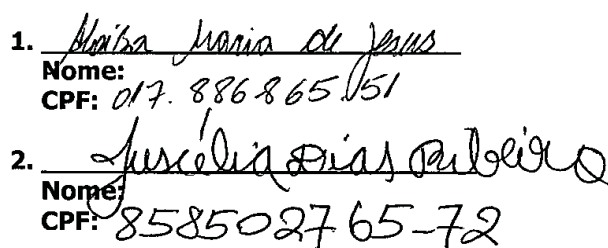 1. Maria de Jesus
Nome:
CPF: 017.886865.51
2. Juscélia Dias Ribeiro
Nome:
CPF: 858502765-72